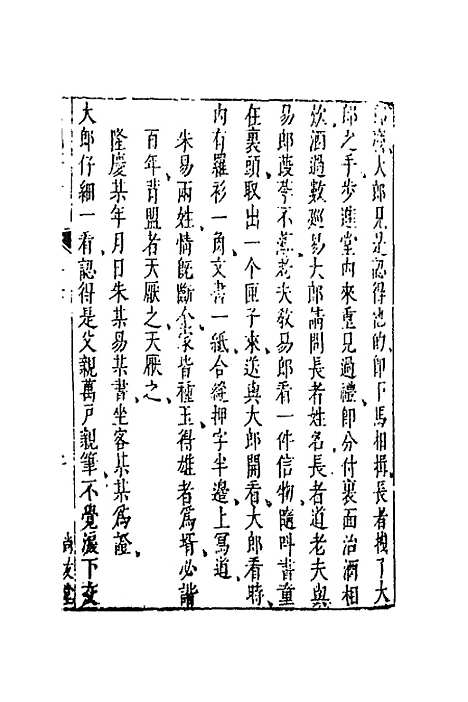 大郎見是認得他的即下馬相揖長者拽了大
郎之手步進堂內來重見過禮即分付裏面治酒相
欵酒過數廵易大郎請問長者姓名長者道老夫與
易郎葭莩不薄老夫敎易郎看一件信物隨呌書童
在裏頭取出一个匣子來送與大郎開看大郎看時
內有羅衫一角文書一紙合縫押字半邊上寫道
朱易兩姓情旣斷金家皆種玉得雄者爲壻必諧
百年背盟者天厭之天厭之
隆慶某年月日朱某易某書坐客某某爲證
大郎仔細一看認得是父親萬戶親筆不覺淚下交
尚友堂